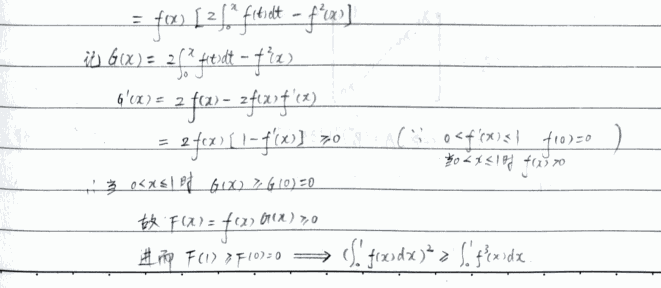 = f(x) [2∫₀ˣ f(t)dt - f²(x)]
记 G(x) = 2∫₀ˣ f(t)dt - f²(x)
G'(x) = 2f(x) - 2f(x)f'(x)
= 2f(x)[1-f'(x)] ≥0 (∵ 0<f'(x)≤1 f(0)=0
当0<x≤1时 f(x)>0 )
∴当 0<x≤1时 G(x)≥G(0)=0
故 F(x) = f(x) G(x) ≥0
进而 F(1) ≥ F(0)=0 ⟹ (∫₀¹ f(x)dx)² ≥ ∫₀¹ f³(x)dx.